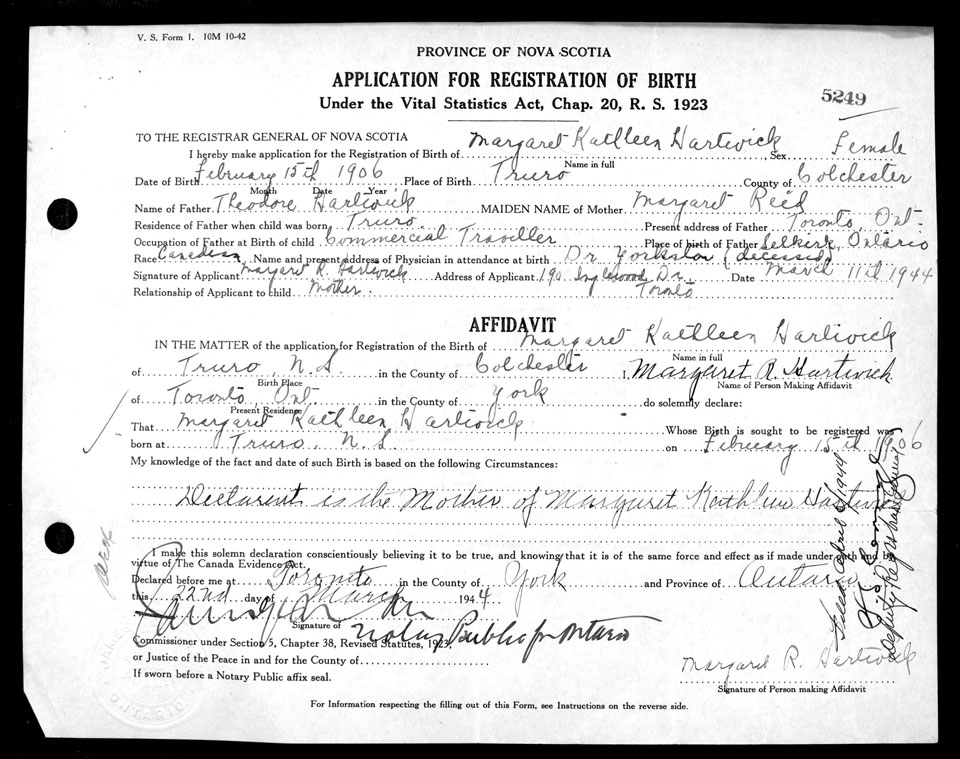 V. S. Form 1. 10M 10-42
PROVINCE OF NOVA SCOTIA
APPLICATION FOR REGISTRATION OF BIRTH
5249
Under the Vital Statistics Act, Chap. 20, R. S. 1923
TO THE REGISTRAR GENERAL OF NOVA SCOTIA
I hereby make application for the Registration of Birth of Margaret Kathleen Hartwick, Sex Female
Name in full
Date of Birth February 15th 1906 Place of Birth Truro County of Colchester
Month Date Year
Name of Father Theodore Hartwick MAIDEN NAME of Mother Margaret Reid
Residence of Father when child was born Truro Present address of Father Toronto, Ont.
Occupation of Father at Birth of child Commercial Traveller Place of birth of Father Selkirk, Ontario
Race Canadian Name and present address of Physician in attendance at birth Dr Yorkston (deceased)
Signature of Applicant Margaret R. Hartwick Address of Applicant 190 Inglewood Dr. Date March 11th 1944
Relationship of Applicant to child Mother. Toronto
AFFIDAVIT
IN THE MATTER of the application for Registration of the Birth of Margaret Kathleen Hartwick
Name in full
of Truro, N.S. in the County of Colchester I, Margaret R. Hartwick
Birth Place Name of Person Making Affidavit
of Toronto, Ont. in the County of York do solemnly declare:
Present Residence
That Margaret Kathleen Hartwick Whose Birth is sought to be registered was
born at Truro, N.S. on February 15th 1906
My knowledge of the fact and date of such Birth is based on the following Circumstances:
Declarent is the Mother of Margaret Kathleen Hartwick
I make this solemn declaration conscientiously believing it to be true, and knowing that it is of the same force and effect as if made under oath and by
virtue of The Canada Evidence Act.
Declared before me at Toronto in the County of York and Province of Ontario
this 22nd day of March 1944
Signature of
Notary Public for Ontario
Commissioner under Section 5, Chapter 38, Revised Statutes, 1923,
or Justice of the Peace in and for the County of
If sworn before a Notary Public affix seal.
Margaret R. Hartwick
Signature of Person making Affidavit
For Information respecting the filling out of this Form, see Instructions on the reverse side.
Filed April 1944
Deputy Registrar General